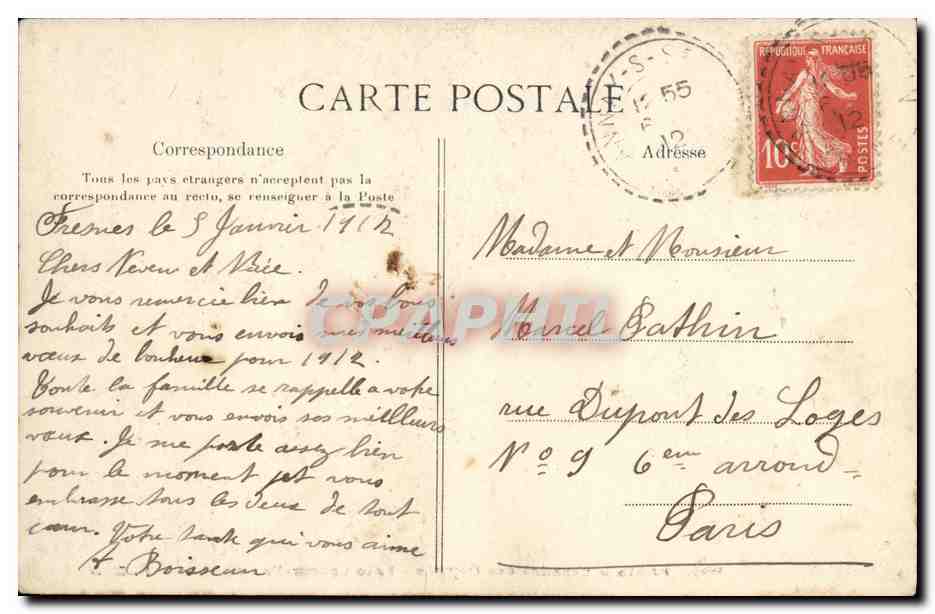 CARTE POSTALE
Correspondance
Tous les pays etrangers n'acceptent pas la
correspondance au recto, se renseigner à la Poste
Fresnes le 5 Janvier 1912
Chers Neveu et Nièce.
Je vous remercie bien de vos bons
souhaits et vous envois mes meilleurs
vœux de bonheur pour 1912.
Toute la famille se rappelle a votre
souvenir et vous envois ses meilleurs
vœux. Je me porte assez bien
pour le moment et vous
embrasse tous les deux de tout
cœur. Votre tante qui vous aime
A. Boisseau
Adresse
Madame et Monsieur
Marcel Pathin
rue Dupont des Loges
No 9 6em arrond-
Paris
REPUBLIQUE FRANÇAISE
10c POSTES
55
12
CPAPHIL